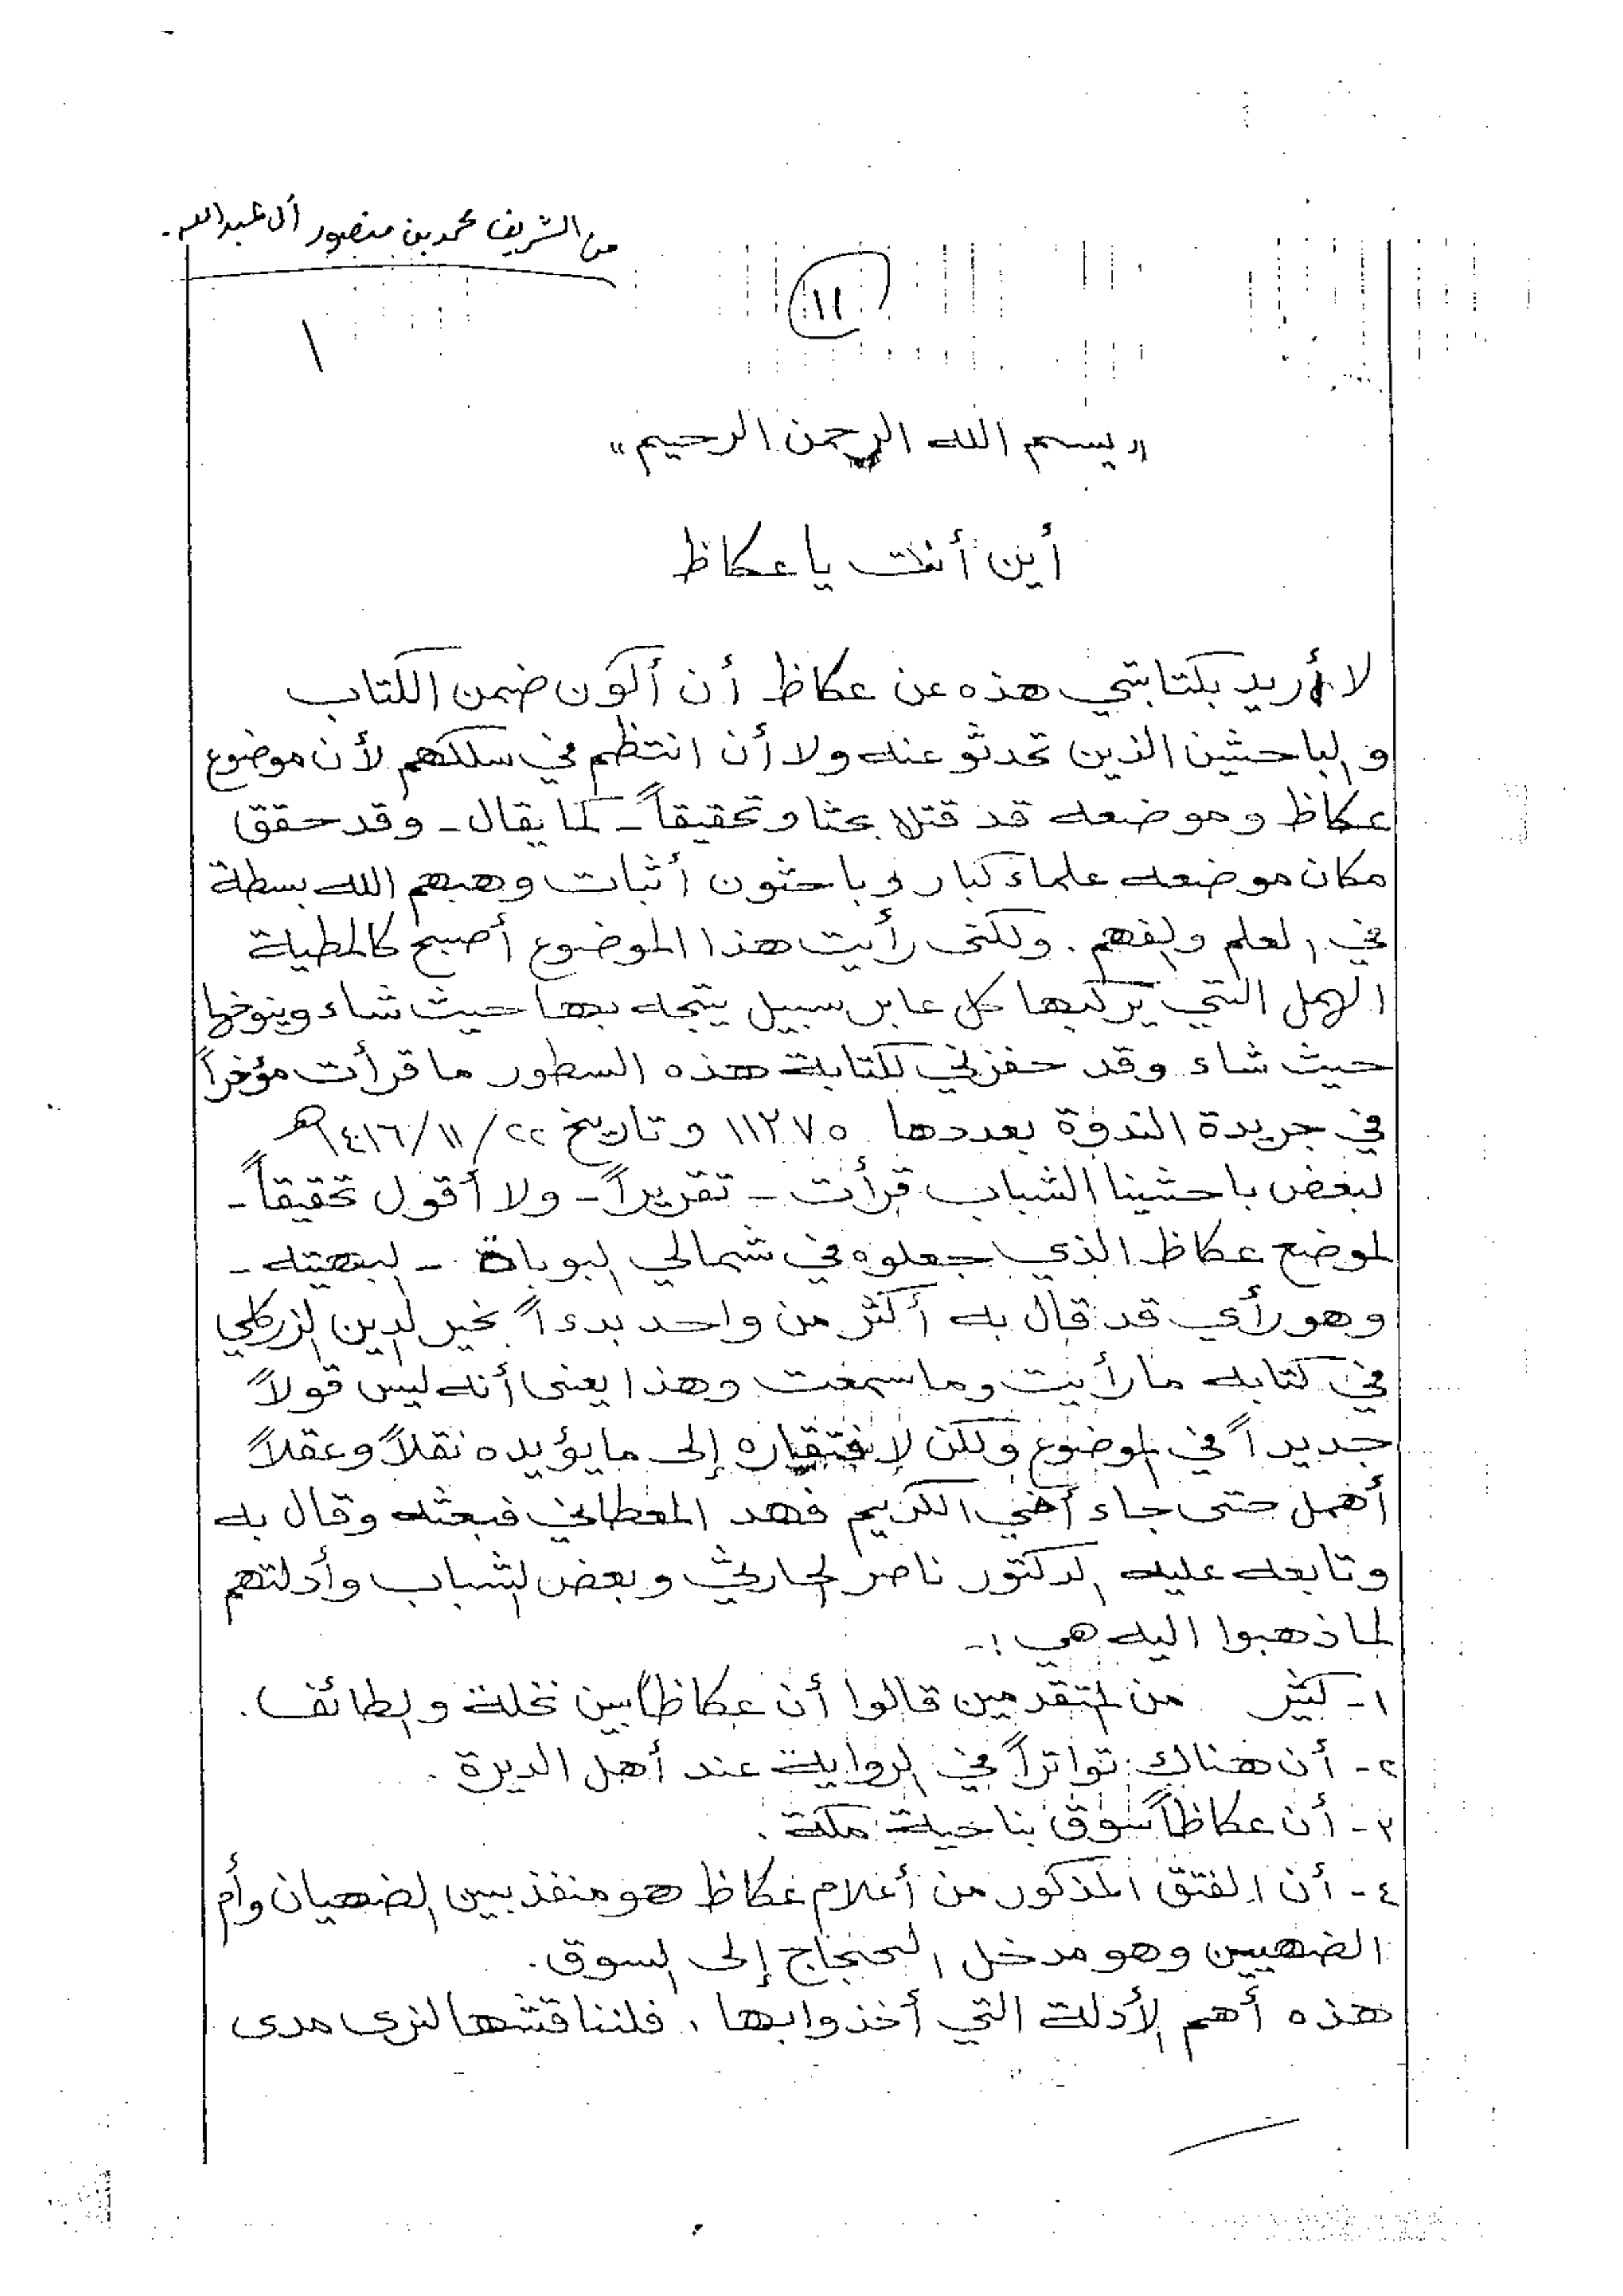 من الشريف محمد بن منصور آل عبدالله.
١١
١
"بسم الله الرحمن الرحيم"
أين أنت يا عكاظ
لا أريد بكتابتي هذه عن عكاظ أن أكون ضمن الكتاب
والباحثين الذين تحدثو عنه ولا أن انتظم في سلكهم لأن موضوع
عكاظ وموضعه قد قتلا بحثا وتحقيقاً - كما يقال - وقد حقق
مكان موضعه علماء كبار وباحثون أثبات وهبهم الله بسطة
في العلم والفهم. ولكنى رأيت هذا الموضوع أصبح كالمطية
الهمل التي يركبها كل عابر سبيل يتجه بها حيث شاء وينوخها
حيث شاء وقد حفزني لكتابة هذه السطور ما قرأت مؤخراً
في جريدة الندوة بعددها ١١٢٧٥ وتاريخ ٢٢/١١/١٤١٦هـ
لبعض باحثينا الشباب قرأت - تقريراً - ولا أقول تحقيقاً -
لموضع عكاظ الذي جعلوه في شمالي البوباة - البهيته -
وهو رأي قد قال به أكثر من واحد بدءاً بخير الدين الزركلي
في كتابه ما رأيت وما سمعت وهذا يعنى أنه ليس قولاً
جديداً في الموضوع ولكن لافتقاره إلى ما يؤيده نقلاً وعقلاً
أهمل حتى جاء أخي الكريم فهد المعطاني فبعثه وقال به
وتابعه عليه الدكتور ناصر الحارثي وبعض الشباب وأدلتهم
لما ذهبوا اليه هي :-
١- كثير من المتقدمين قالوا أن عكاظاً بين نخلة والطائف.
٢- أن هناك تواتراً في الرواية عند أهل الديرة.
٣- أن عكاظاً سوق بناحية مكة.
٤- أن الفتق المذكور من أعلام عكاظ هو منفذ بين الضهيان وأم
الضهيين وهو مدخل الحجاج إلى السوق.
هذه أهم الأدلة التي أخذوا بها. فلنناقشها لنرى مدى